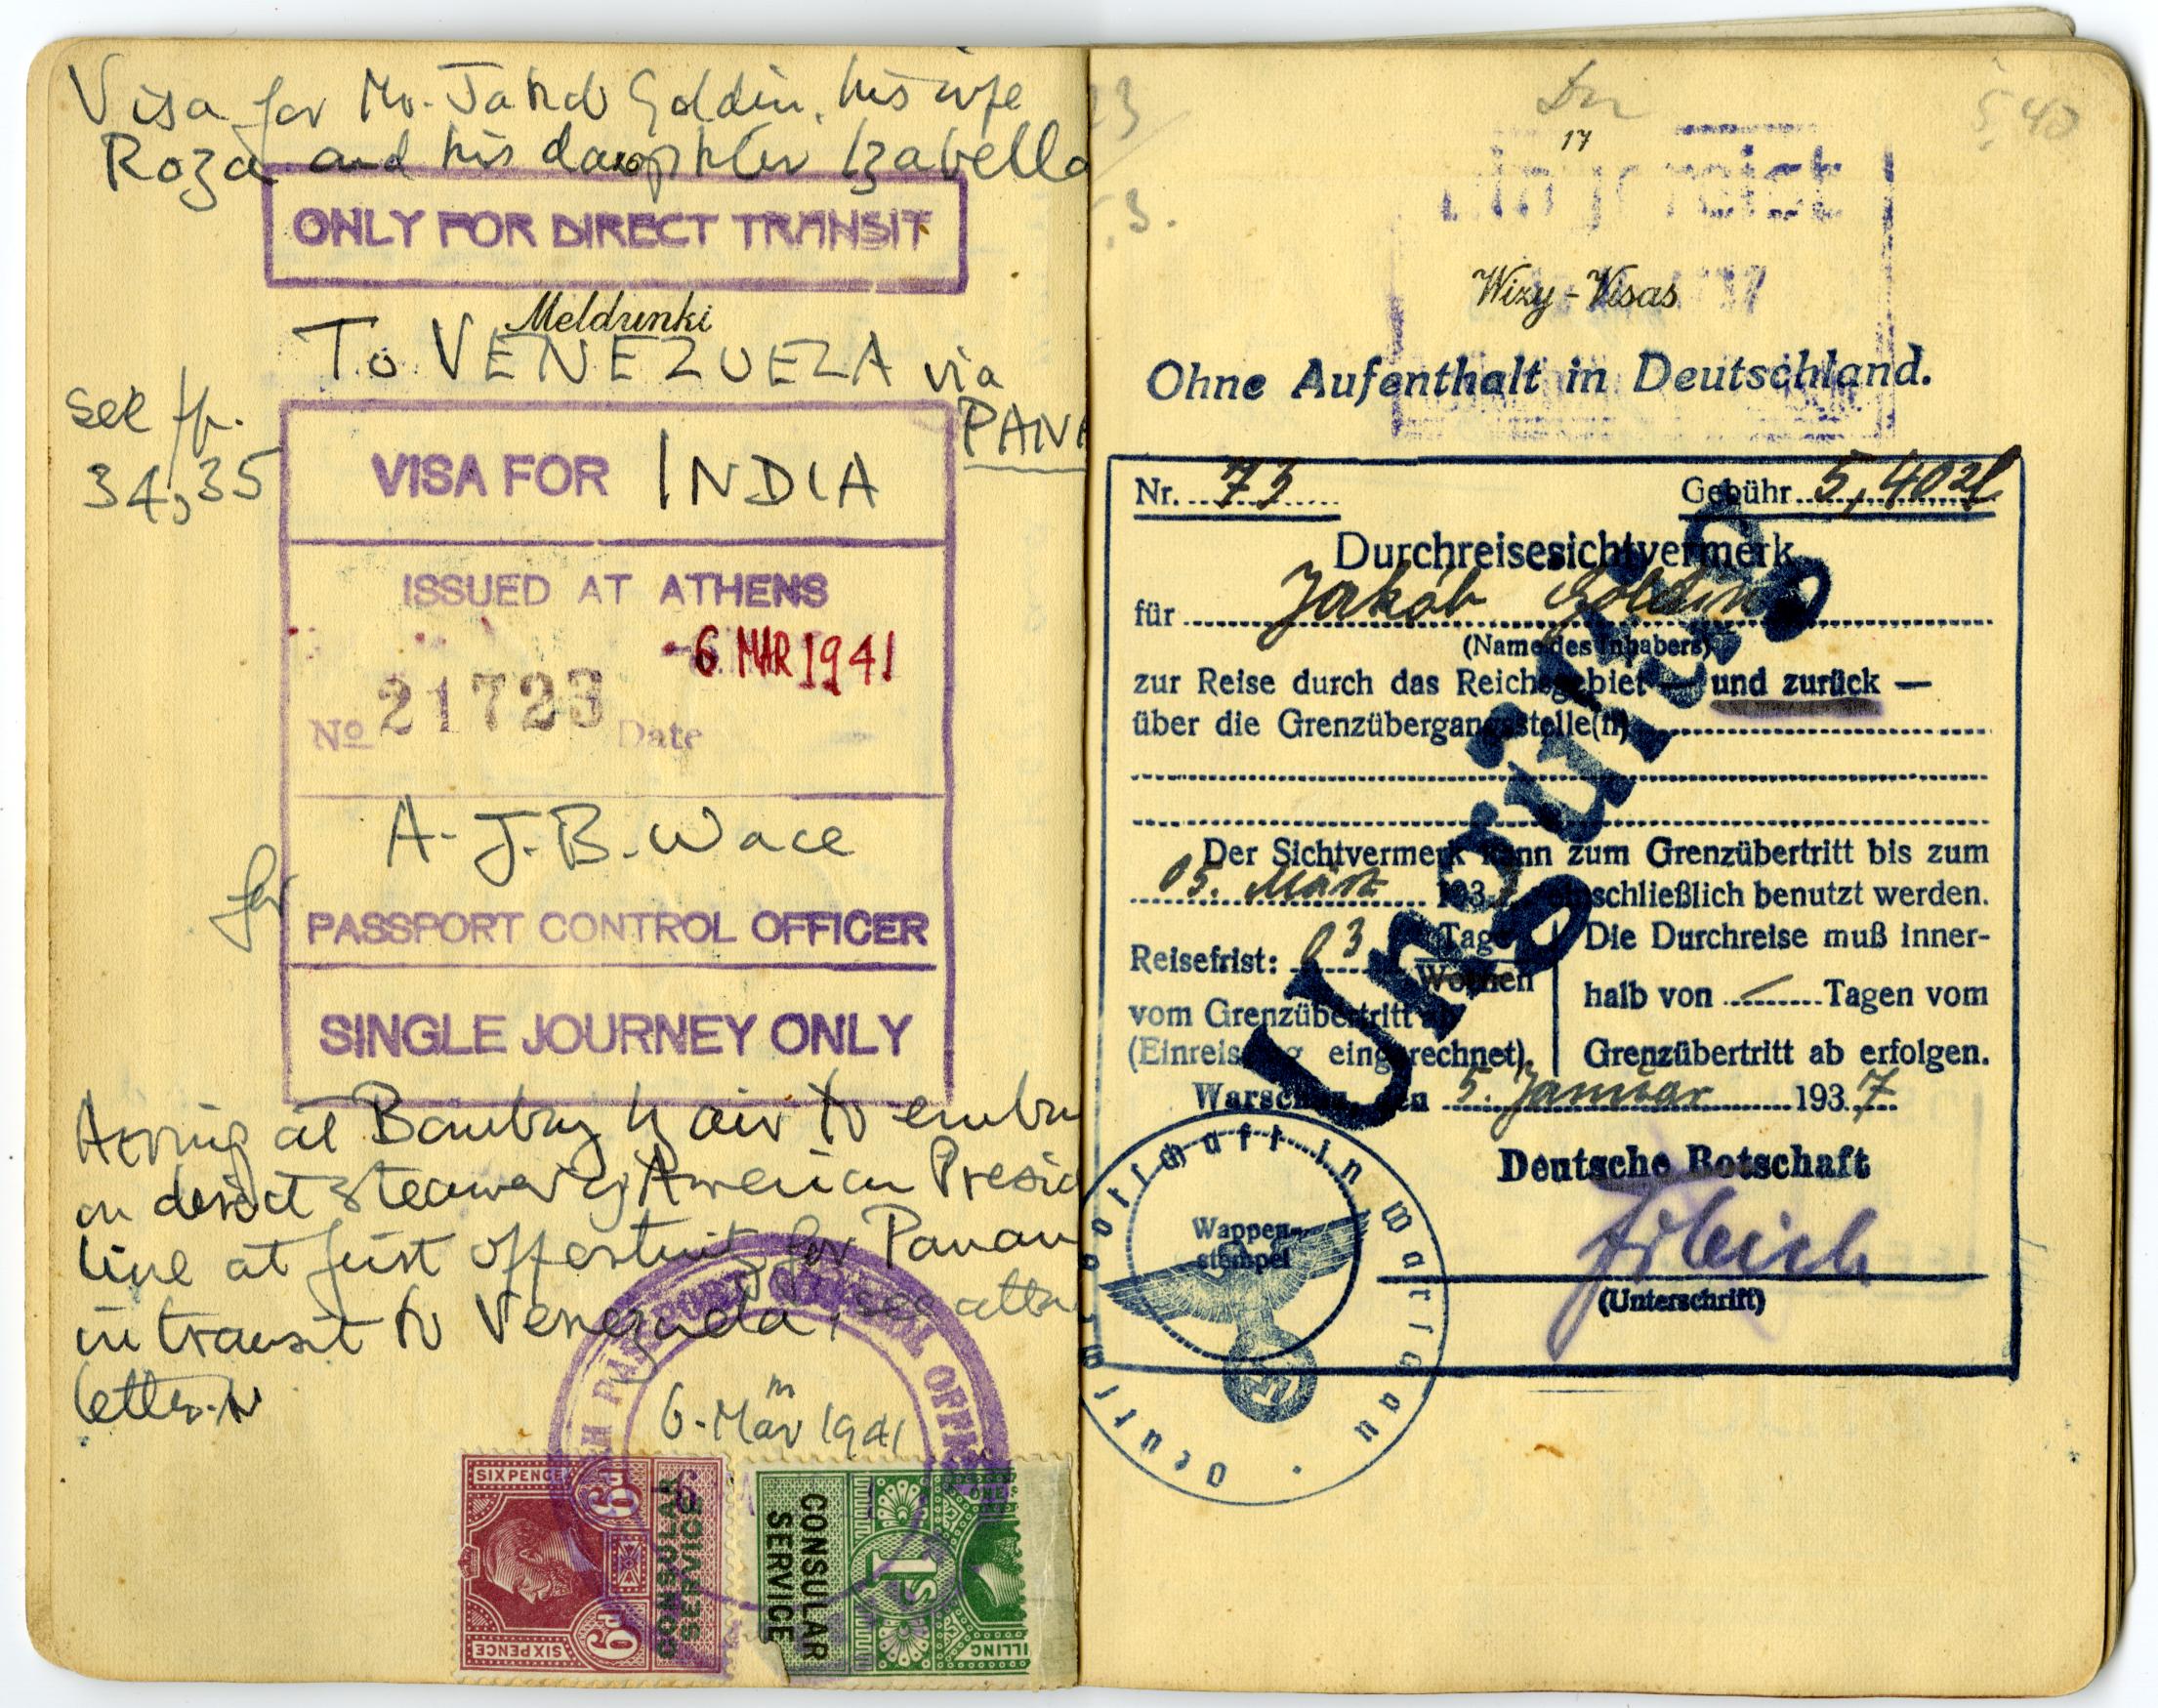 Visa for Mr. Jakob Goldin, his wife
Roza and his daughter Izabella
16
ONLY FOR DIRECT TRANSIT
Meldunki
To VENEZUELA via
PANA
see pp.
34,35
VISA FOR INDIA
ISSUED AT ATHENS
-6 MAR 1941
No 21723 Date
A. J. B. Wace
for
PASSPORT CONTROL OFFICER
SINGLE JOURNEY ONLY
Arriving at Bombay by air to emba
on direct steamer of American Presid
line at first opportunity for Panam
in transit to Venezuela, see atta
letter.
PASSPORT CONTROL OFFI
6. Mar 1941
SIXPENCE
6D
CONSULAR SERVICE
6D
SIXPENCE
CONSULAR SERVICE
1s
ONE S
ILLING
5,40
17
Wizy-Visas
Ohne Aufenthalt in Deutschland.
Nr. 73 Gebühr 5,40 zl
Durchreisesichtvermerk
für Jakób Goldin
(Name des Inhabers)
zur Reise durch das Reichsgebiet — und zurück —
über die Grenzübergangsstelle(n)
Ungültig
Der Sichtvermerk kann zum Grenzübertritt bis zum
05. März 1937 einschließlich benutzt werden.
Reisefrist: 03 Tage
Wochen
vom Grenzübertritt ab
(Einreisetag eingerechnet).
Die Durchreise muß inner-
halb von Tagen vom
Grenzübertritt ab erfolgen.
Warschau, den 5. Januar 1937
Deutsche Botschaft
Wappen-
stempel
(Unterschrift)
Deutsche Botschaft in Warschau